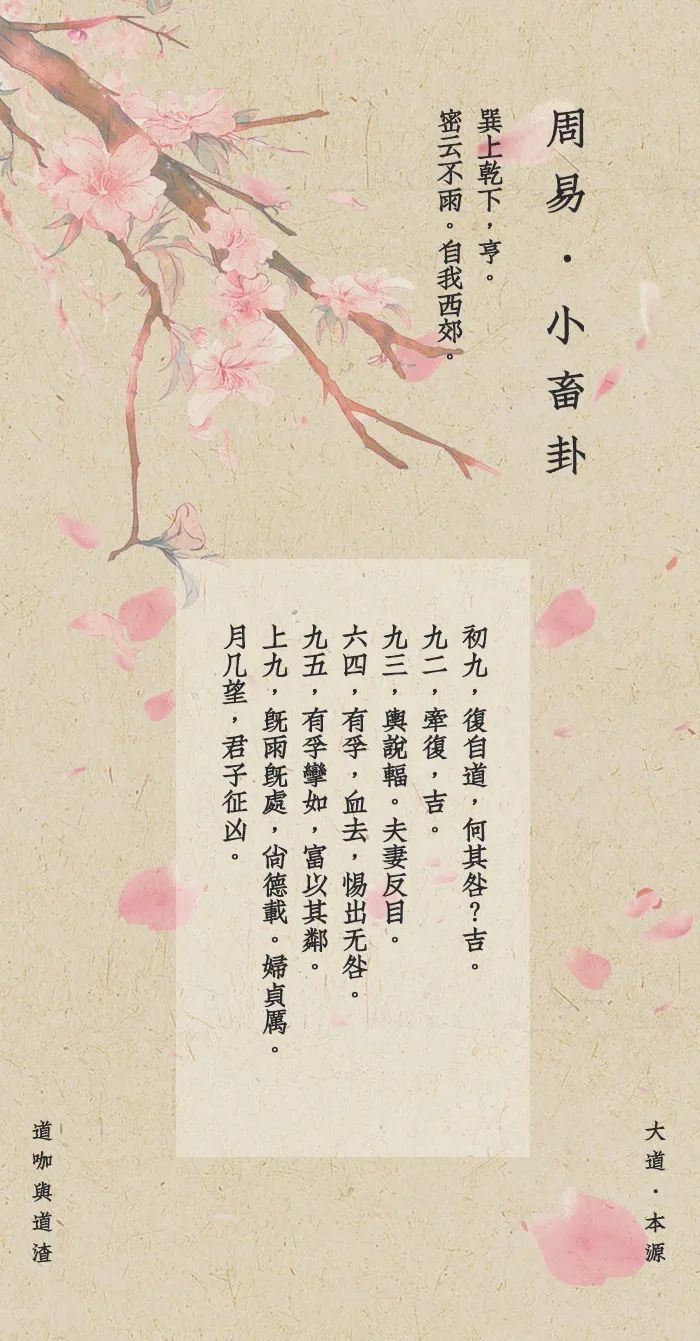 周易·小畜卦
巽上乾下，亨。
密云不雨。自我西郊。
初九，復自道，何其咎？吉。
九二，牽復，吉。
九三，輿說輻。夫妻反目。
六四，有孚，血去，惕出无咎。
九五，有孚攣如，富以其鄰。
上九，既雨既處，尚德載。婦貞厲。
月几望，君子征凶。
大道·本源
道咖與道渣